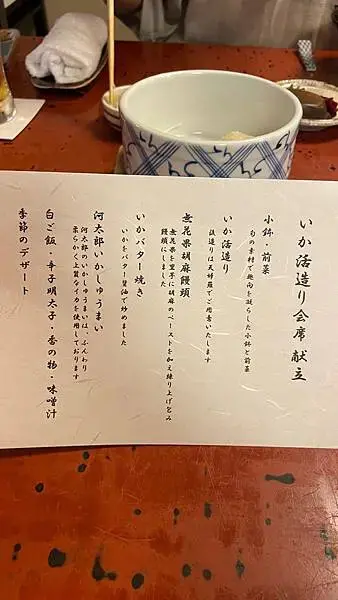 いか活造り会席 献立
小鉢・前菜
旬の素材で趣向を凝らした小鉢と前菜
いか活造り
後造りは天婦羅でご用意いたします
無花果胡麻饅頭
無花果を裏手に胡麻のペーストを加え練り上げ包み
饅頭にしました
いかバター焼き
いかをバター醤油で炒めました
河太郎いかしゅうまい
河太郎のいかしゅうまいは、ふんわり
柔らかく上質なイカを使用しております
白ご飯・辛子明太子・香の物・味噌汁
季節のデザート